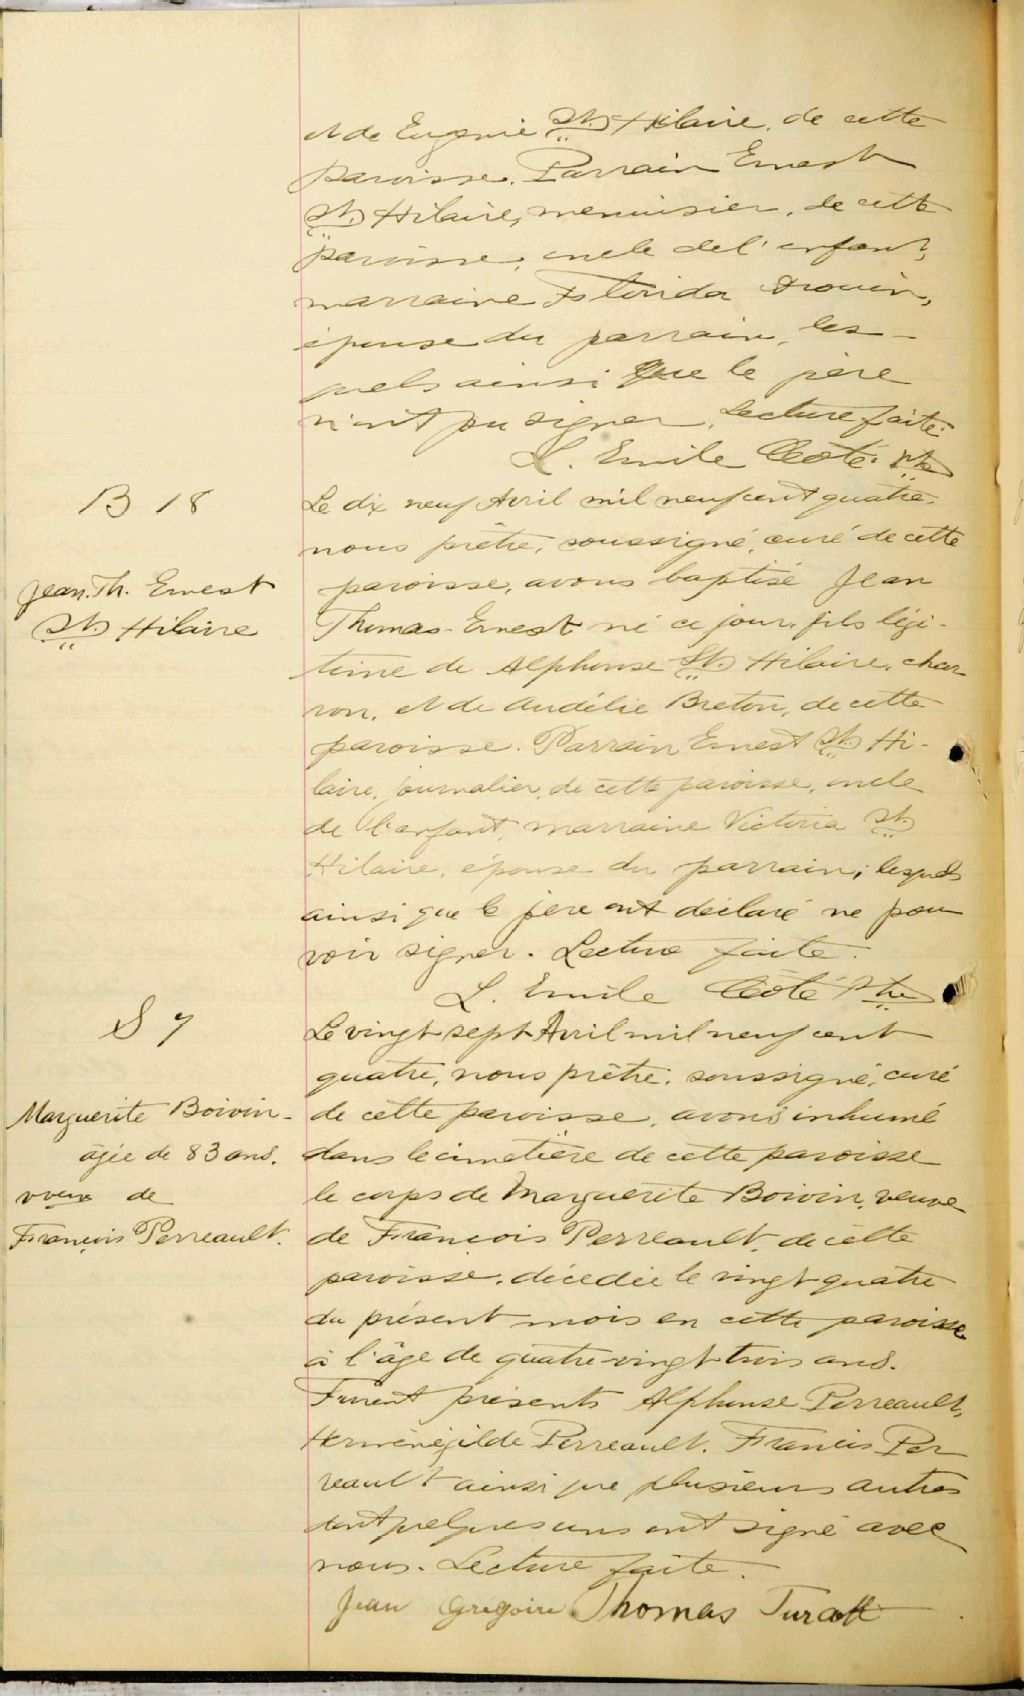 et de Eugénie St. Hilaire, de cette
paroisse. Parrain Ernest
St. Hilaire, menuisier, de cette
paroisse, oncle de l'enfant,
marraine Florida Drouin,
épouse du parrain, les-
quels ainsi que le père
n'ont pu signer. Lecture faite.
L. Emile Côté. ptre
B 18
Jean. Th. Ernest
St. Hilaire
Le dix neuf Avril mil neuf cent quatre,
nous prêtre, soussigné, curé de cette
paroisse, avons baptisé Jean
Thomas-Ernest né ce jour, fils légi-
time de Alphonse St. Hilaire, char
ron, et de Audélie Breton, de cette
paroisse. Parrain Ernest St. Hi-
laire, journalier, de cette paroisse, oncle
de l'enfant, marraine Victoria St.
Hilaire, épouse du parrain; lesquels
ainsi que le père ont déclaré ne pou
voir signer. Lecture faite.
L. Emile Côté Ptre
S 7
Marguerite Boivin-
âgée de 83 ans.
veuve de
François Perreault.
Le vingt-sept Avril mil neuf cent
quatre, nous prêtre, soussigné, curé
de cette paroisse, avons inhumé
dans le cimetière de cette paroisse
le corps de Marguerite Boivin, veuve
de François Perreault, de cette
paroisse, décédée le vingt quatre
du présent mois en cette paroisse
à l'âge de quatre vingt trois ans.
Furent présents Alphonse Perreault,
Herménégilde Perreault, Francis Per
reault ainsi que plusieurs autres
dont quelques uns ont signé avec
nous. Lecture faite.
Jean Grégoire Thomas Turcott